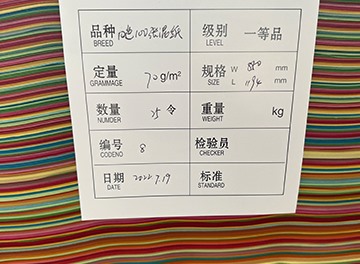 品种 10色100张混纸 级别 一等品
BREED LEVEL
定量 70g/m² 规格 W 880 mm
GRAMMAGE SIZE L 1194 mm
数量 25 令 重量 kg
NUMDER WEIGHT
编号 8 检验员
CODENO CHECKER
日期 2022.7.19 标准
DATE STANDARD